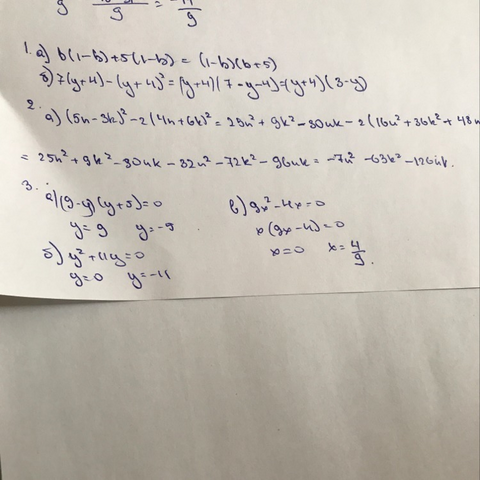 9
9 = 9
1. а) b(1-b)+5(1-b) = (1-b)(b+5)
б) 7(y+4)-(y+4)² = (y+4)(7-y-4)=(y+4)(3-y)
2.
а) (5n-3k)²-2(4n+6k)² = 25n²+9k²-30nk-2(16n²+36k²+48n
= 25n²+9k²-30nk-32n²-72k²-96nk = -7n²-63k²-126nk.
3.
а) (9-y)(y+5)=0
y=9 y=-5
б) y²+11y=0
y=0 y=-11
в) 9x²-4x=0
x(9x-4)=0
x=0 x=4/9.